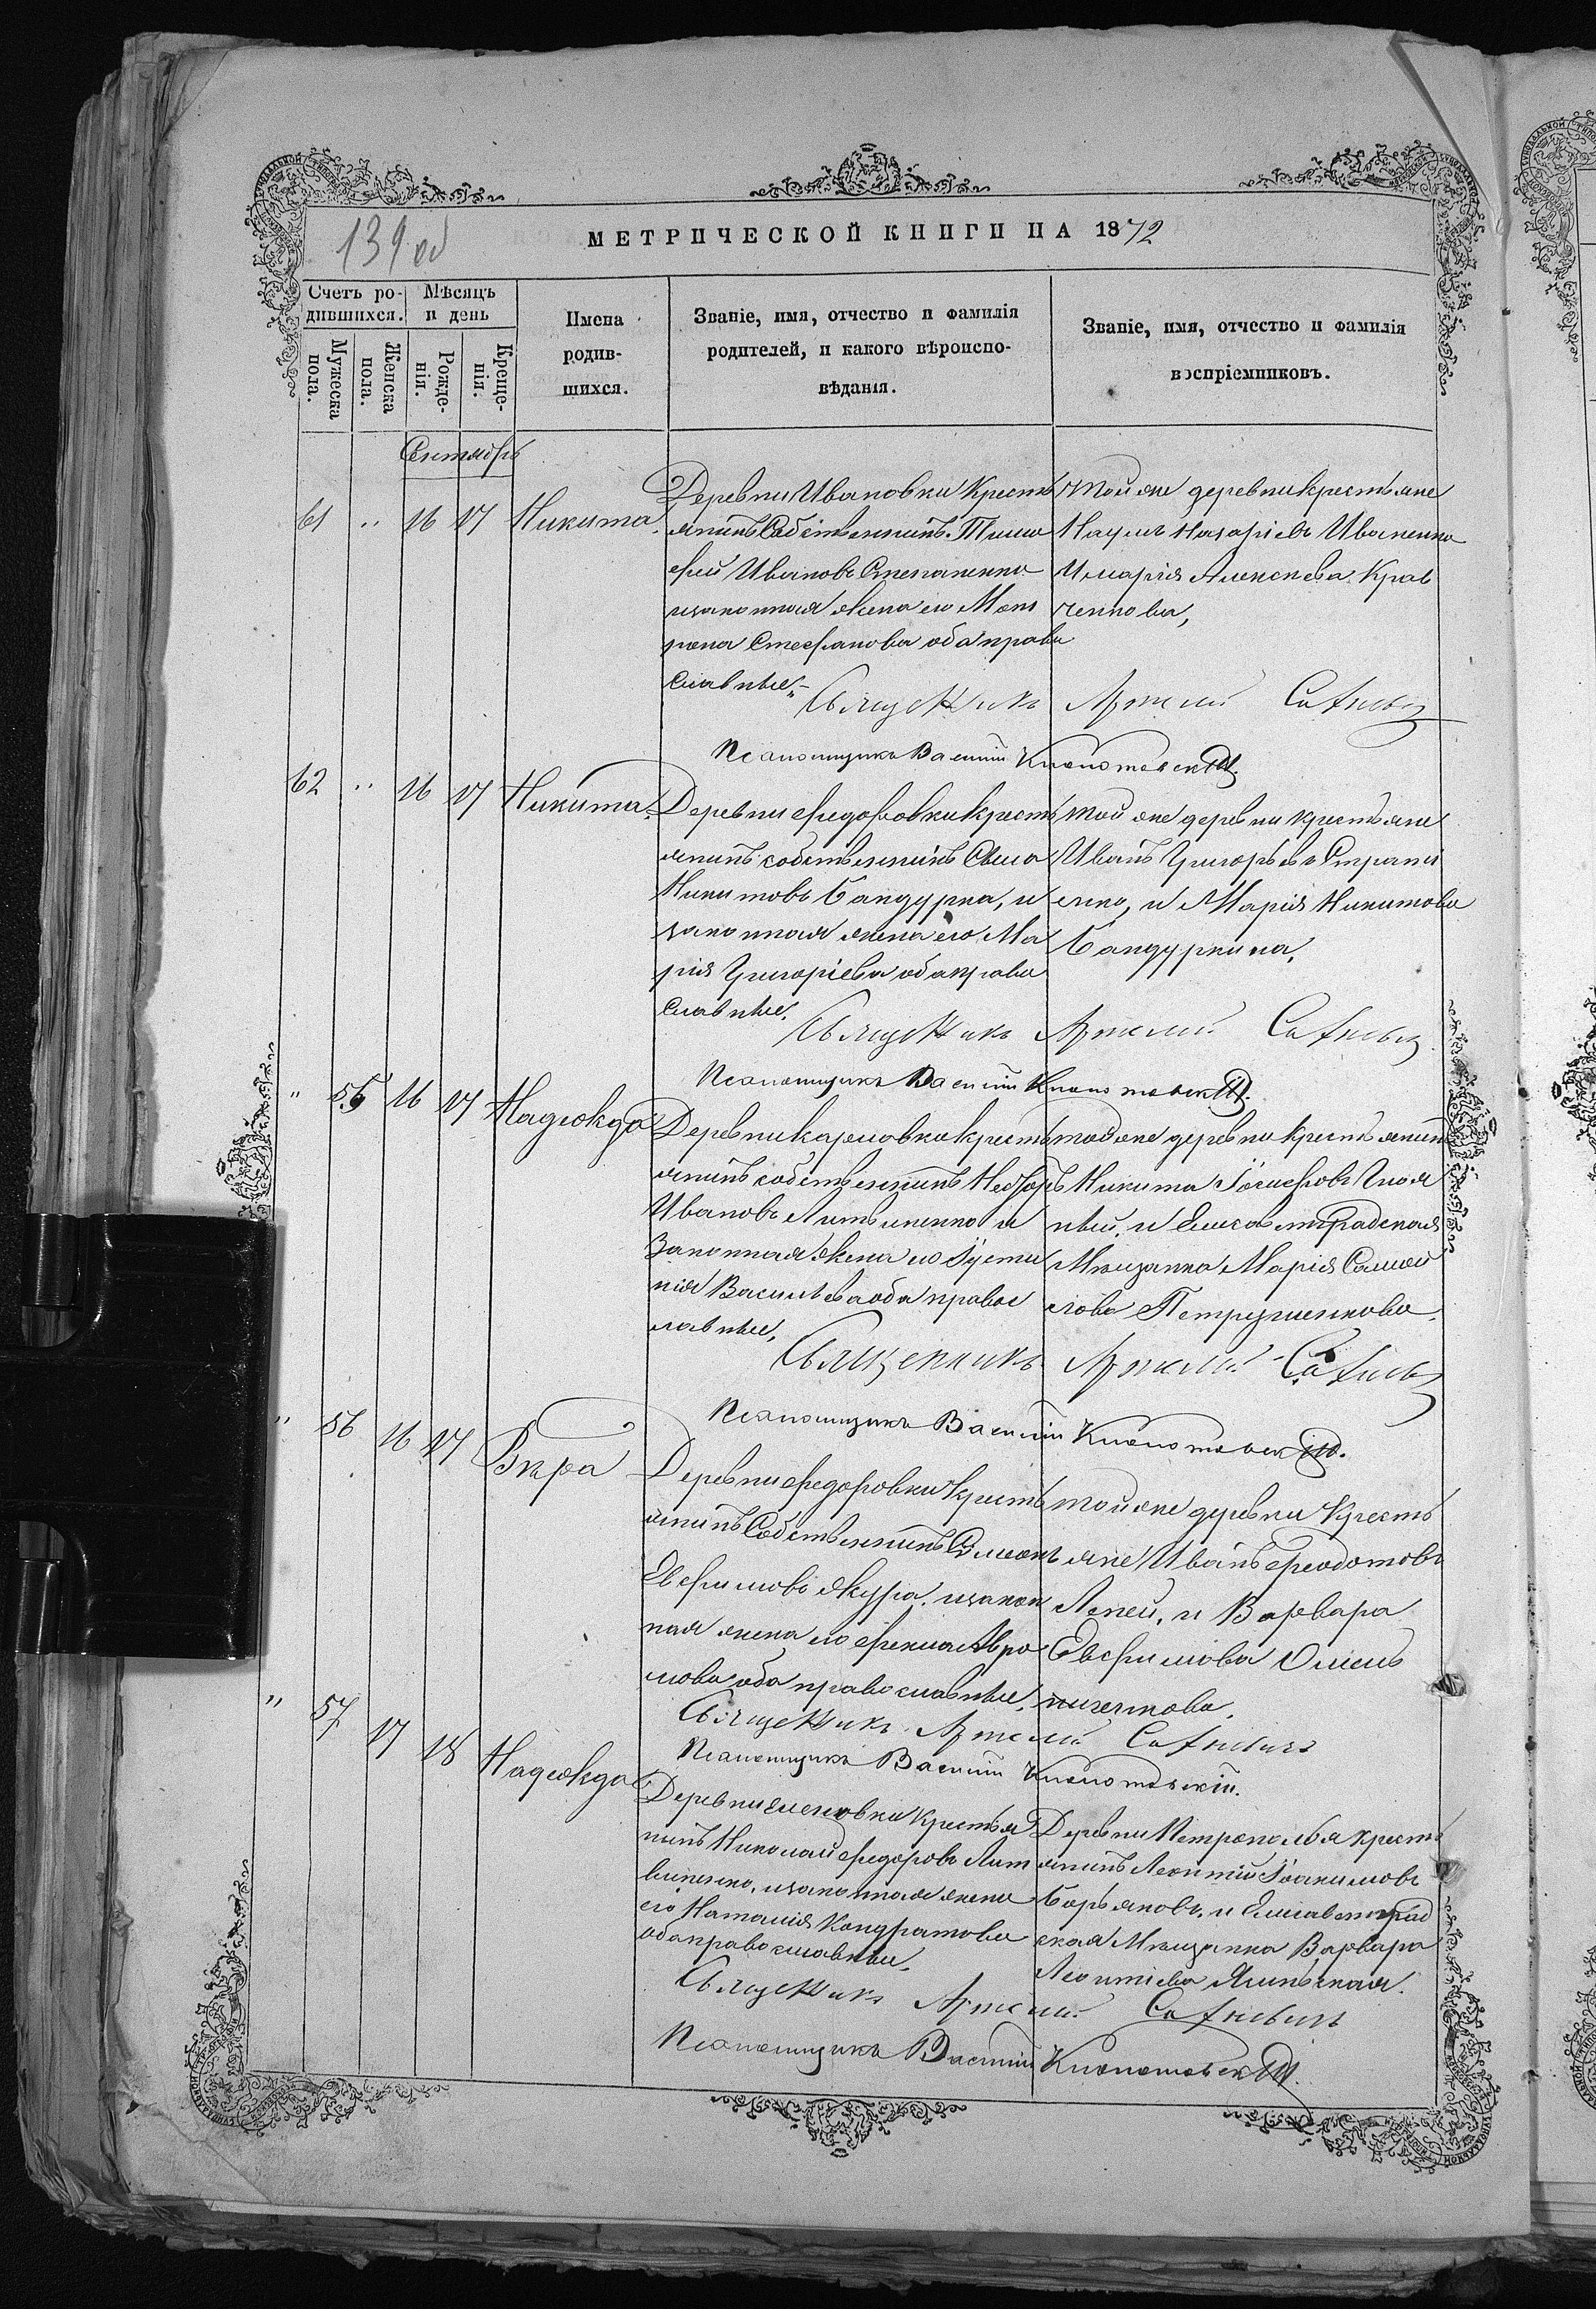 139 об
МЕТРИЧЕСКОЙ КНИГИ НА 1872
Счетъ родившихся.
Мѣсяцъ и день
Имена родившихся.
Званіе, имя, отчество и фамилія родителей, и какого вѣроисповѣданія.
Званіе, имя, отчество и фамилія воспріемниковъ.
Мужеска пола.
Женска пола.
Рожденія.
Крещенія.
Сентябрь
61 " 16 17 Никита.
Деревни Ивановки Кресть
янинъ Собственникъ Тимо
фей Ивановъ Степаненко
и законная жена его Мат
рона Стефанова оба право
славные.
той же деревни крестьяне
Наумъ Назаріевъ Иваненко
и Марія Алексеева Крав
ченкова,
Священникъ Артемій
Псаломщикъ Василій Клопотовскій.
62 " 16 17 Никита.
Деревни Федоровки Кресть
янинъ собственникъ Сила
Никитовъ Бандурка, и
законная жена его Ма
рія Григоріева оба право
славные.
той же деревни крестьяне
Иванъ Григорьевъ
и Марія Никитова
Бандуркина.
Священникъ Артемій
Псаломщикъ Василій Клопотовскій.
" 55 16 17 Надежда
Деревни Карловки кресть
янинъ собственникъ
Ивановъ Литвиненко и
законная жена его Густи
нія Васильева оба правос
лавные.
той же деревни крестьянинъ
Никита Іосифовъ
и Елисаветградская
Мѣщанка Марія Самой
лова Петрушенкова.
Священникъ Артемій
Псаломщикъ Василій Клопотовскій.
" 56 16 17 Вѣра
Деревни Федоровки Кресть
янинъ Собственникъ Симеонъ
Евфимовъ Жура и закон
ная жена его Фекла Авра
мова оба православные.
той же деревни Кресть
яне Иванъ Феодотовъ
Лепей, и Варвара
Евфимова Омель
ниченкова.
Священникъ Артемій
Псаломщикъ Василій Клопотовскій.
" 57 17 18 Надежда
Деревни Еленовки Крестья
нинъ Николай Федоровъ Лит
виненко, и законная жена
его Наталія Кондратова
оба православные.
Деревни Петрополья кресть
янинъ Леонтій Іоакимовъ
Борьяковъ, и Елисаветград
ская Мѣщанка Варвара
Леонтіева
Священникъ Артемій
Псаломщикъ Василій Клопотовскій.